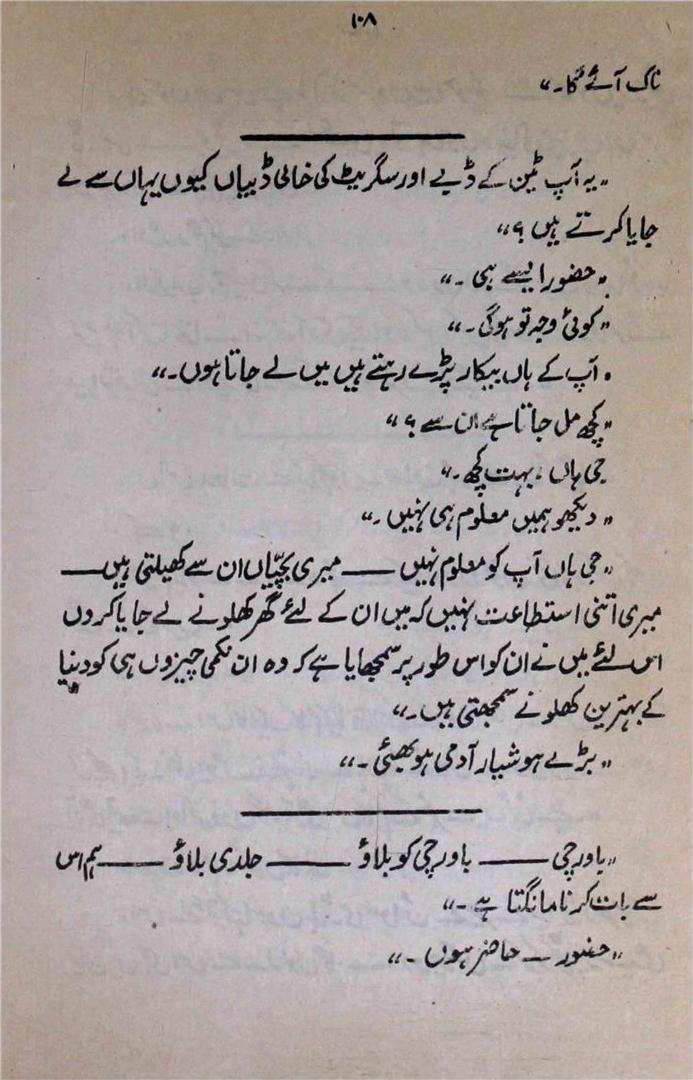 ۱۰۸
ناک آئے گا۔"
"یہ آپ ٹین کے ڈبے اور سگریٹ کی خالی ڈبیاں کیوں یہاں سے لے
جایا کرتے ہیں ؟"
"حضور ایسے ہی ۔"
"کوئی وجہ تو ہوگی ۔"
"آپ کے ہاں بیکار پڑے رہتے ہیں میں لے جاتا ہوں۔"
"کچھ مل جاتا ہے ان سے ؟"
جی ہاں ۔ بہت کچھ ۔"
"دیکھو ہمیں معلوم ہی نہیں ۔"
"جی ہاں آپ کو معلوم نہیں —— میری بچیّاں ان سے کھیلتی ہیں ——
میری اتنی استطاعت نہیں کہ میں ان کے لئے گھر کھلونے لے جایا کروں
اس لئے میں نے ان کو اس طور پر سمجھایا ہے کہ وہ ان نکمی چیزوں ہی کو دنیا
کے بہترین کھلونے سمجھتی ہیں ۔"
"بڑے ہوشیار آدمی ہو بھئی ۔"
"باورچی —— باورچی کو بلاؤ —— جلدی بلاؤ —— ہم اس
سے بات کرنا مانگتا ہے ۔"
"حضور — حاضر ہوں ۔"